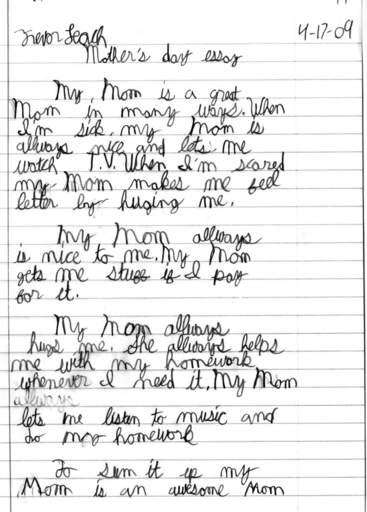 Trevor Leach 4-17-09
Mother's day essay
My Mom is a great
Mom in many ways. When
I'm sick, my Mom is
allways nice and lets me
watch T.V. When I'm scared
my Mom makes me feel
better by huging me.
My Mom allways
is nice to me. My Mom
gets me stuff if I pay
for it.
My Mom allways
hugs me. She allways helps
me with my homework
whenever I need it. My Mom
allways
lets me listen to music and
do my homework
To sum it up my
Mom is an awesome Mom